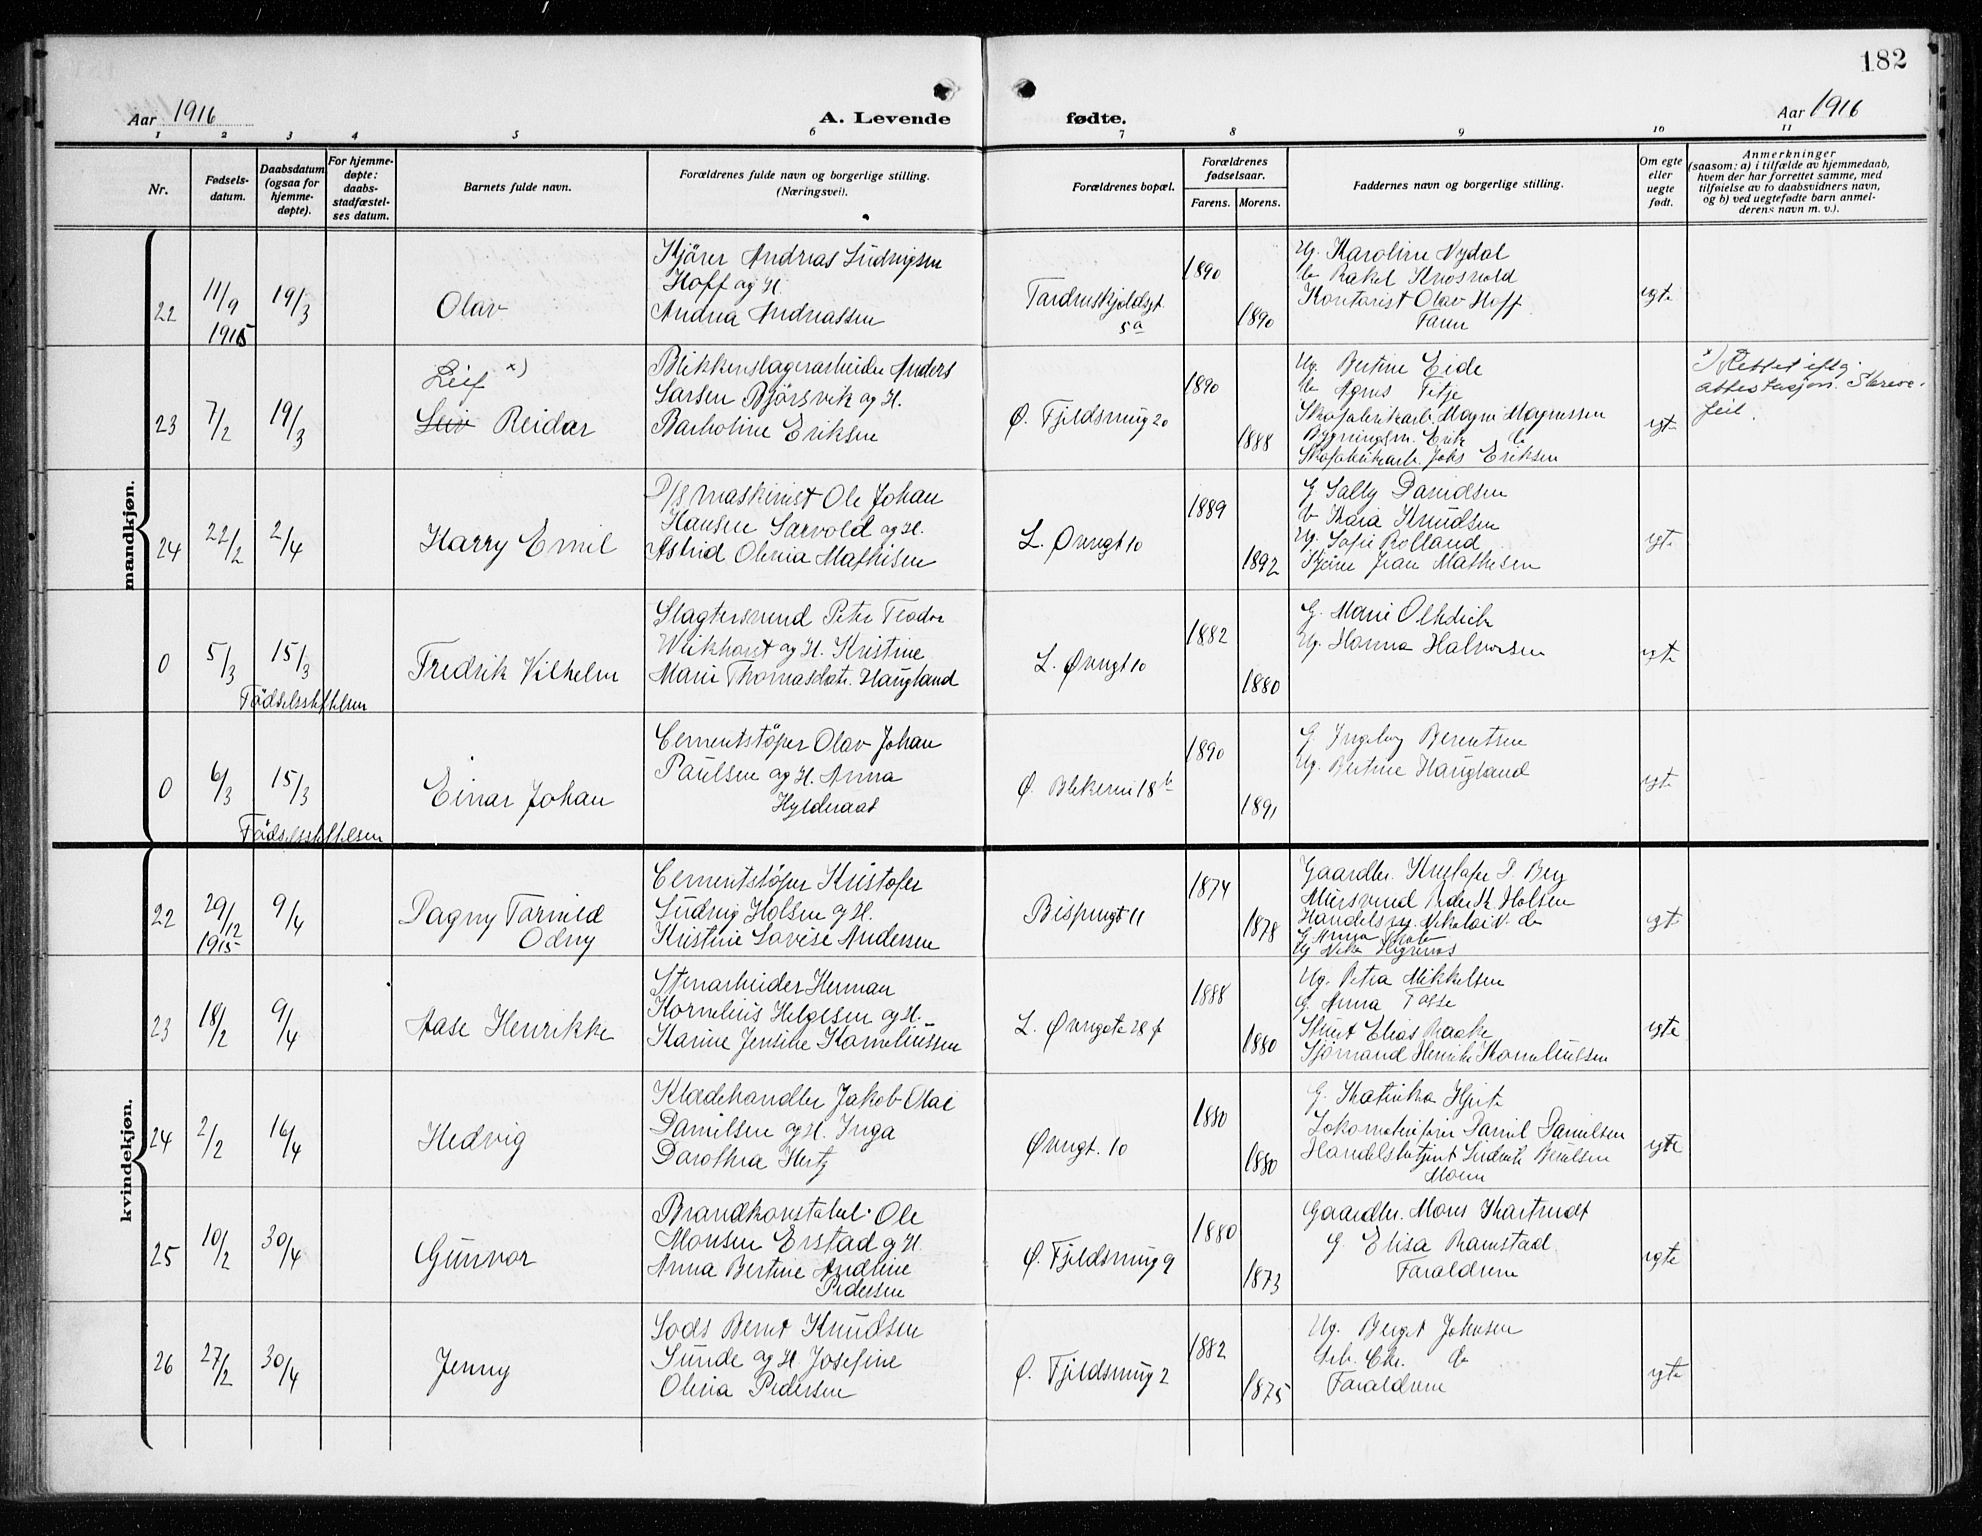 182
Aar 1916
A. Levende
fødte.
Aar 1916
1 2 3 4 5 6 7 8 9 10 11
Nr.
Fødsels-
datum.
Daabsdatum
(ogsaa for
hjemme-
døpte).
For hjemme-
døpte:
daabs-
stadfæstel-
ses datum.
Barnets fulde navn.
Forældrenes fulde navn og borgerlige stilling.
(Næringsvei).
Forældrenes bopæl.
Forældrenes
fødselsaar.
Farens. Morens.
Faddernes navn og borgerlige stilling.
Om egte
eller
uegte
født.
Anmerkninger
(saasom: a) i tilfælde av hjemmedaab,
hvem der har forrettet samme, med
tilføielse av to daabsvidners navn,
og b) ved uegtefødte barn anmel-
derens navn m. v.).
mandkjøn.
22
11/9
1915
19/3
Olav
Kjører Andreas Ludvigsen
Hoff og H.
Andrea Andreassen
Tordenskjoldsgt.
5a
1890
1890
Ug. Karoline Nydal
Kontorist Olav Hoff
Faren
egte
23
7/2
19/3
Leif x)
Leiv Reidar
Blikkenslagerarbeider Anders
Larsen Bjørsvik og H.
Bartholine Eriksen
Ø. Fjeldsmug 20
1890
1888
Ug. Bertine Eide
Agnes
Skofabrikarb. Magne Magnussen
Bygningsm. Erik do
Skofabrikarb. Johs Eriksen
egte
x) Rettet iflg.
attestasjon. Skrive-
feil.
24
22/2
2/4
Harry Emil
D/S maskinist Ole Johan
Hansen Sarvold og H.
Astrid Olivia Mathisen
L. Øvregt 10
1889
1892
G. Sally Davidsen
Kaia Knudsen
Ug. Sofie Rolland
Kjører Jean Mathisen
egte
0
5/3
15/3
Fødselsstiftelsen
Fredrik Vilhelm
Slagtersvend Peter Teodor
Weikhorst og H. Kristine
Marie Thomasdatr. Haugland
L. Øvregt 10
1882
1880
G. Marie Olhdieck
Ug. Hanna Halvorsen
egte
0
6/3
15/3
Fødselsstiftelsen
Einar Johan
Cementstøper Olav Johan
Paulsen og H. Anna
Hylderaas
Ø. Blekevei 18 b
1890
1891
G. Ingeborg Berentsen
Ug. Bertine Haugland
egte
kvindekjøn.
22
29/12
1915
9/4
Dagny Torhild
Odny
Cementstøper Kristofer
Ludvig Holsen og H.
Kristine Lovise Andersen
Bispengt 11
1874
1878
Gaardbr. Kristofer P. Berg
Mursvend Peder K. Holsen
Handelsrg. Nikolai N. do
G Anna
egt
23
18/2
9/4
Aase Henrikke
Stenarbeider Herman
Kornelius Helgesen og H.
Karine Jensine Korneliussen
L. Øvregate 28 f
1888
1880
Ug. Petra Mikkelsen
G. Anna Fosse
Elias Raake
Sjømand Henrik Korneliussen
egte
24
2/2
16/4
Hedvig
Klædehandler Jakob Olai
Danielsen og H. Inga
Dorothea Hertz
Øvregt. 10
1880
1880
G. Katinka Hertz
Lokomotivfører Daniel Danielsen
Handelsbetjent Ludvik Berulsen
Moren
egte
25
10/2
30/4
Gunvor
Brandkonstabel Ole
Monsen Erstad og H.
Anna Bertine Andrine
Pedersen
Ø. Fjeldsmug 9
1880
1873
Gaardbr. Mons Kartvedt
G. Elisa Ramstad
Forældrene
egte
26
27/2
30/4
Jenny
Lods Bernt Knudsen
Sunde og H. Josefine
Olivia Pedersen
Ø. Fjeldsmug 2
1882
1875
Ug. Berget Johnsen
Chr. do
Forældrene
egte